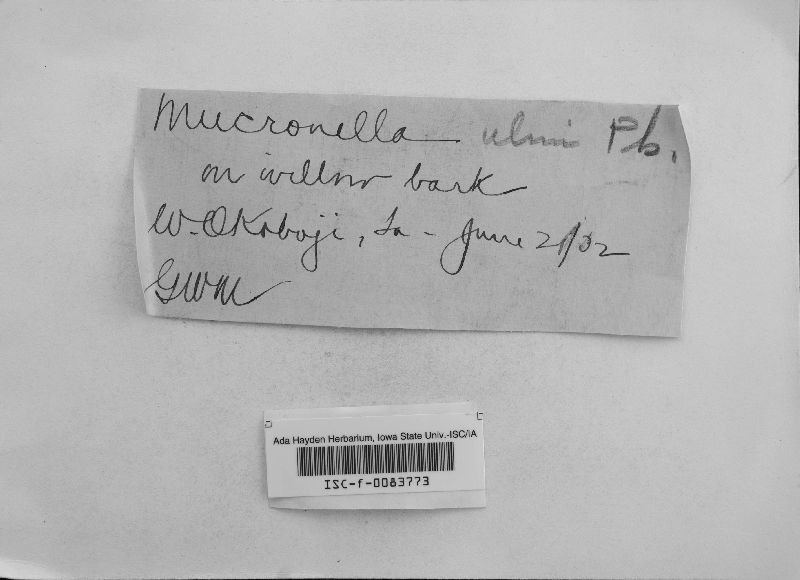 Mucronella ulmi Pk.
on willow bark
W. Okoboji, Ia - June 21/32
GWM
Ada Hayden Herbarium, Iowa State Univ.-ISC/IA
ISC-f-0083773